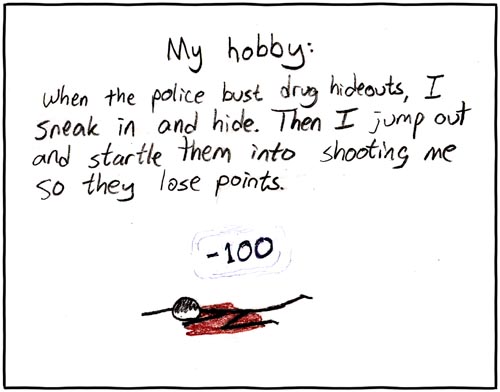 My hobby:
when the police bust drug hideouts, I
sneak in and hide. Then I jump out
and startle them into shooting me
so they lose points.
-100